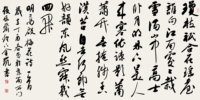 瓊姿只合在瑤臺
誰向江南處處
栽雪滿山中高士
臥月明林下美人
來寒依疏影蕭
蕭竹春掩殘香
漠漠苔自去何郎無
好詠東風愁寂幾
回開
明高啟梅花詩